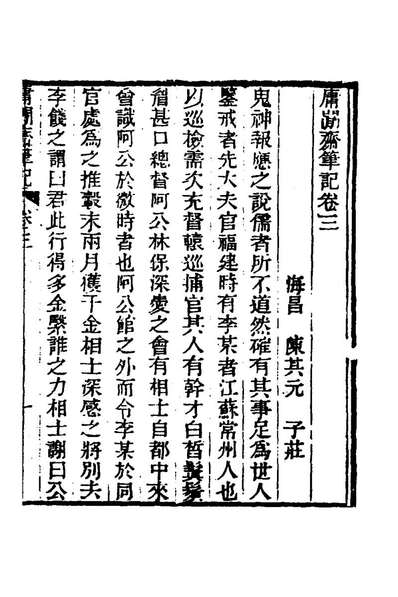 庸閒齋筆記卷三
海昌　陳其元　子莊
鬼神報應之說儒者所不道然確有其事足爲世人
鑒戒者先大夫官福建時有李某者江蘇常州人也
以巡檢需次充督轅巡捕官其人有幹才白皙鬑鬑
甚口總督阿公林保深愛之會有相士自都中來
曾識阿公於微時者也阿公館之外而令李某於同
官處爲之推轂未兩月獲千金相士深感之將別去
李餞之謂曰君此行得多金繄誰之力相士謝曰公
庸閒齋筆記　卷三　一